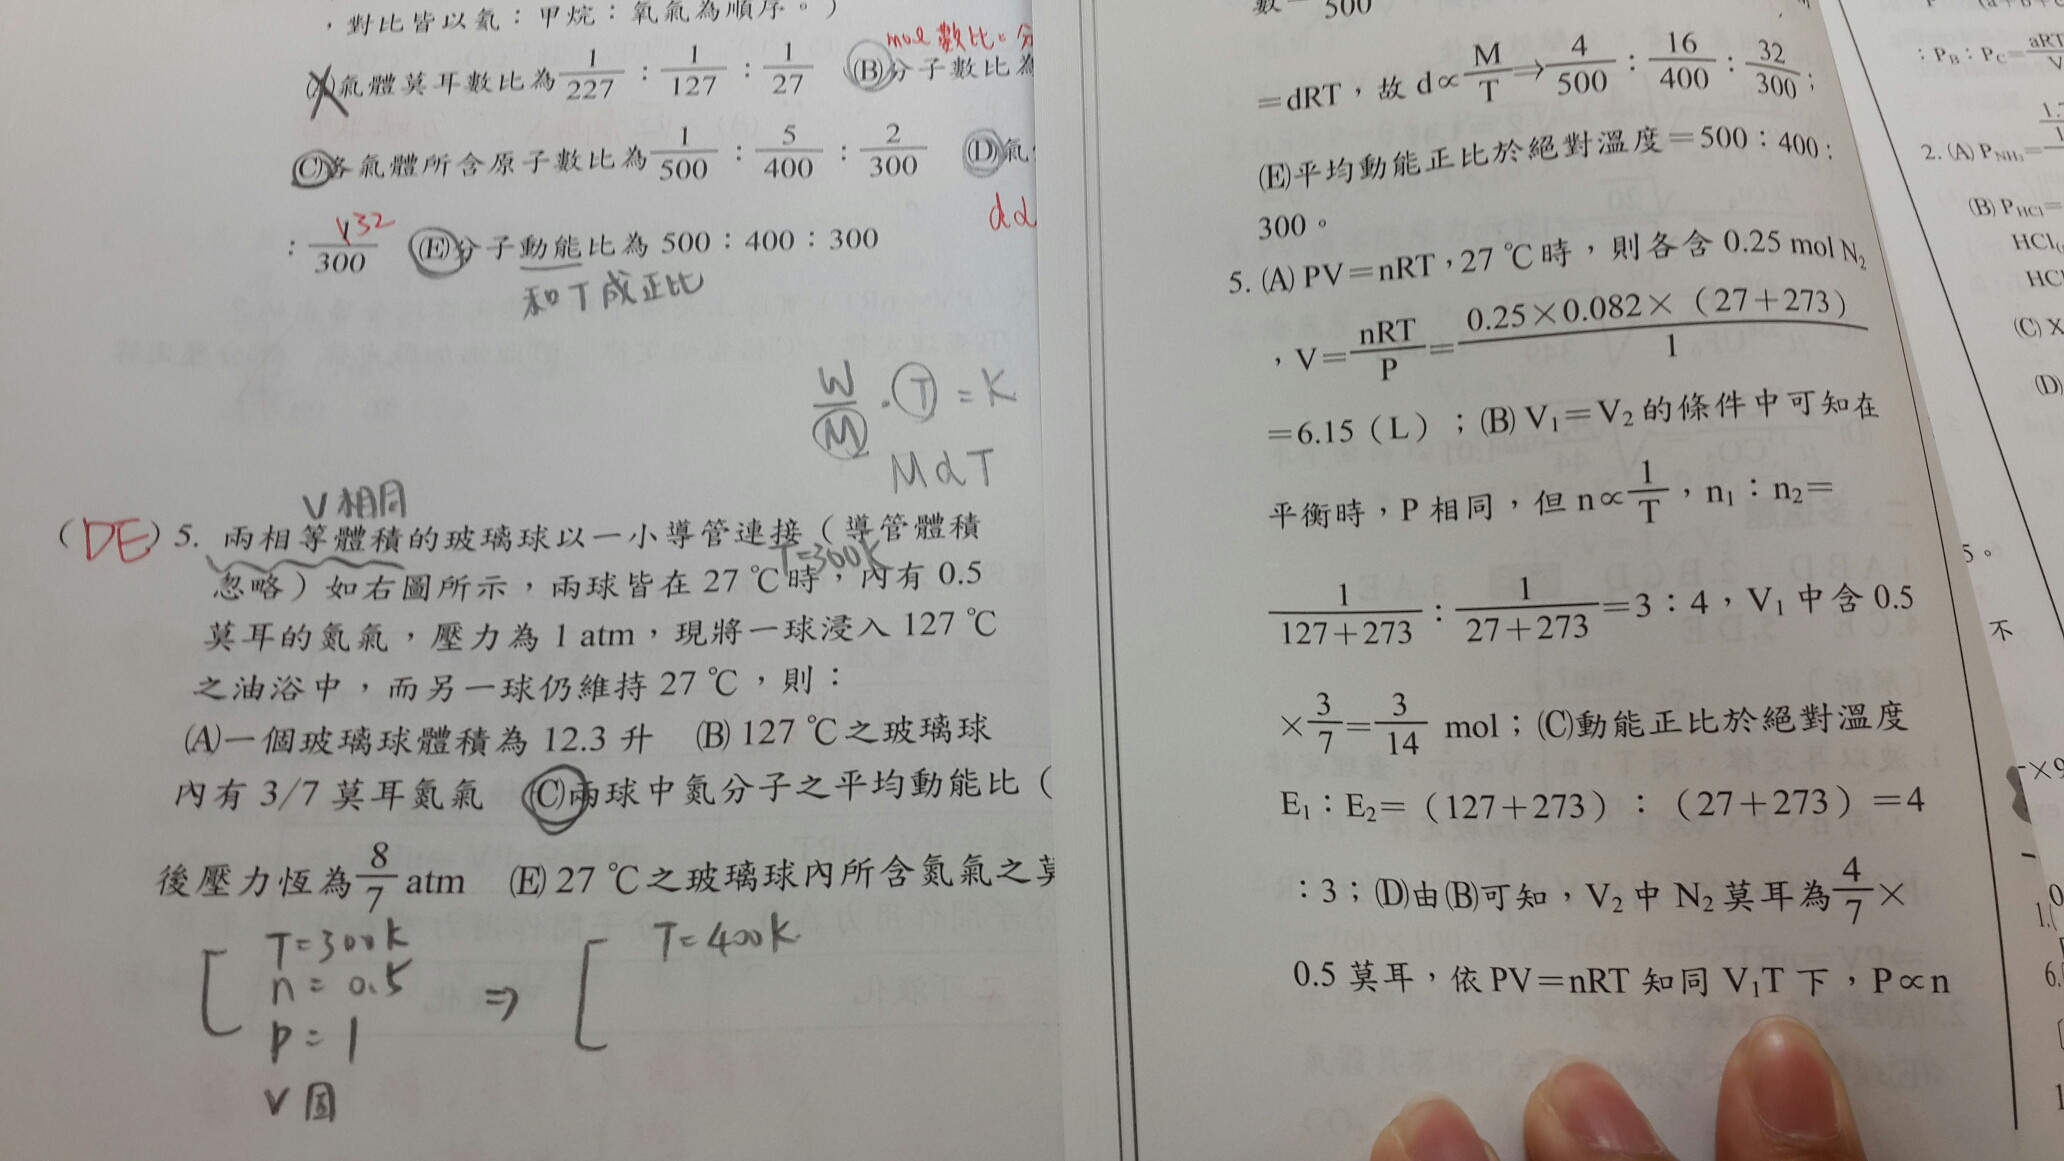 ，對比皆以氦：甲烷：氧氣為順序。）
mol數比=分
(A)氣體莫耳數比為 1/227 : 1/127 : 1/27 (B)分子數比為
(C)各氣體所含原子數比為 1/500 : 5/400 : 2/300 (D)氣
dα
32
: /300 (E)分子動能比為 500：400：300
和T成正比
W/M · T = K
M α T
V相同
(DE) 5. 兩相等體積的玻璃球以一小導管連接（導管體積
T=300K
忽略）如右圖所示，兩球皆在 27 ℃時，內有 0.5
莫耳的氮氣，壓力為 1 atm，現將一球浸入 127 ℃
之油浴中，而另一球仍維持 27 ℃，則：
(A)一個玻璃球體積為 12.3 升 (B) 127 ℃之玻璃球
內有 3/7 莫耳氮氣 (C)兩球中氮分子之平均動能比（
後壓力恆為 8/7 atm (E) 27 ℃之玻璃球內所含氮氣之莫
T=300K
n=0.5
P=1
V固
⇒
T=400K
500
=dRT，故 d∝ M/T → 4/500 : 16/400 : 32/300；
(E)平均動能正比於絕對溫度＝500：400：
300。
5. (A) PV=nRT，27 ℃時，則各含 0.25 mol N₂
，V= nRT/P = 0.25×0.082×（27+273）/1
=6.15（L）；(B) V₁=V₂ 的條件中可知在
平衡時，P 相同，但 n∝ 1/T，n₁：n₂=
1/127+273 : 1/27+273 =3：4，V₁ 中含 0.5
× 3/7 = 3/14 mol；(C)動能正比於絕對溫度
E₁：E₂=（127+273）：（27+273）=4
：3；(D)由(B)可知，V₂ 中 N₂ 莫耳為 4/7 ×
0.5 莫耳，依 PV=nRT 知同 V₁T 下，P∝n
: P_B : P_C = aRT/V
2. (A) P_NH₃=
(B) P_HCl=
HCl
HC
(C) X
(D)
5。
不